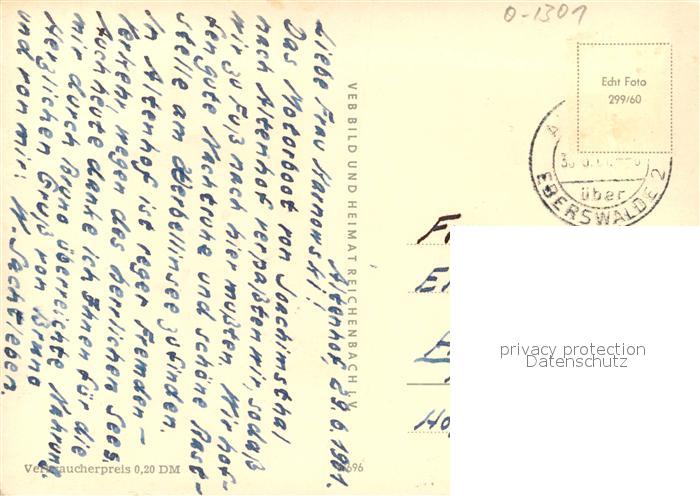 Altenhof, 29.6.1961.
Liebe Frau Harnowski!
Das Motorboot von Joachimsthal
nach Altenhof verpaßten wir, sodaß
wir zu Fuß nach hier mußten. Wir hof-
fen gute Nachtruhe und schöne Rast-
stelle am Werbellinsee zu finden.
In Altenhof ist reger Fremden-
verkehr, wegen des herrlichen Sees.
Auch heute danke ich Ihnen für die
mir durch Bruno überreichte Nahrung.
Herzlichen Gruß von Bruno
und von mir: W. Sachtleben.
VEB BILD UND HEIMAT REICHENBACH i. V.
Verbraucherpreis 0,20 DM
0-1301
Echt Foto
299/60
über
EBERSWALDE 2
privacy protection
Datenschutz